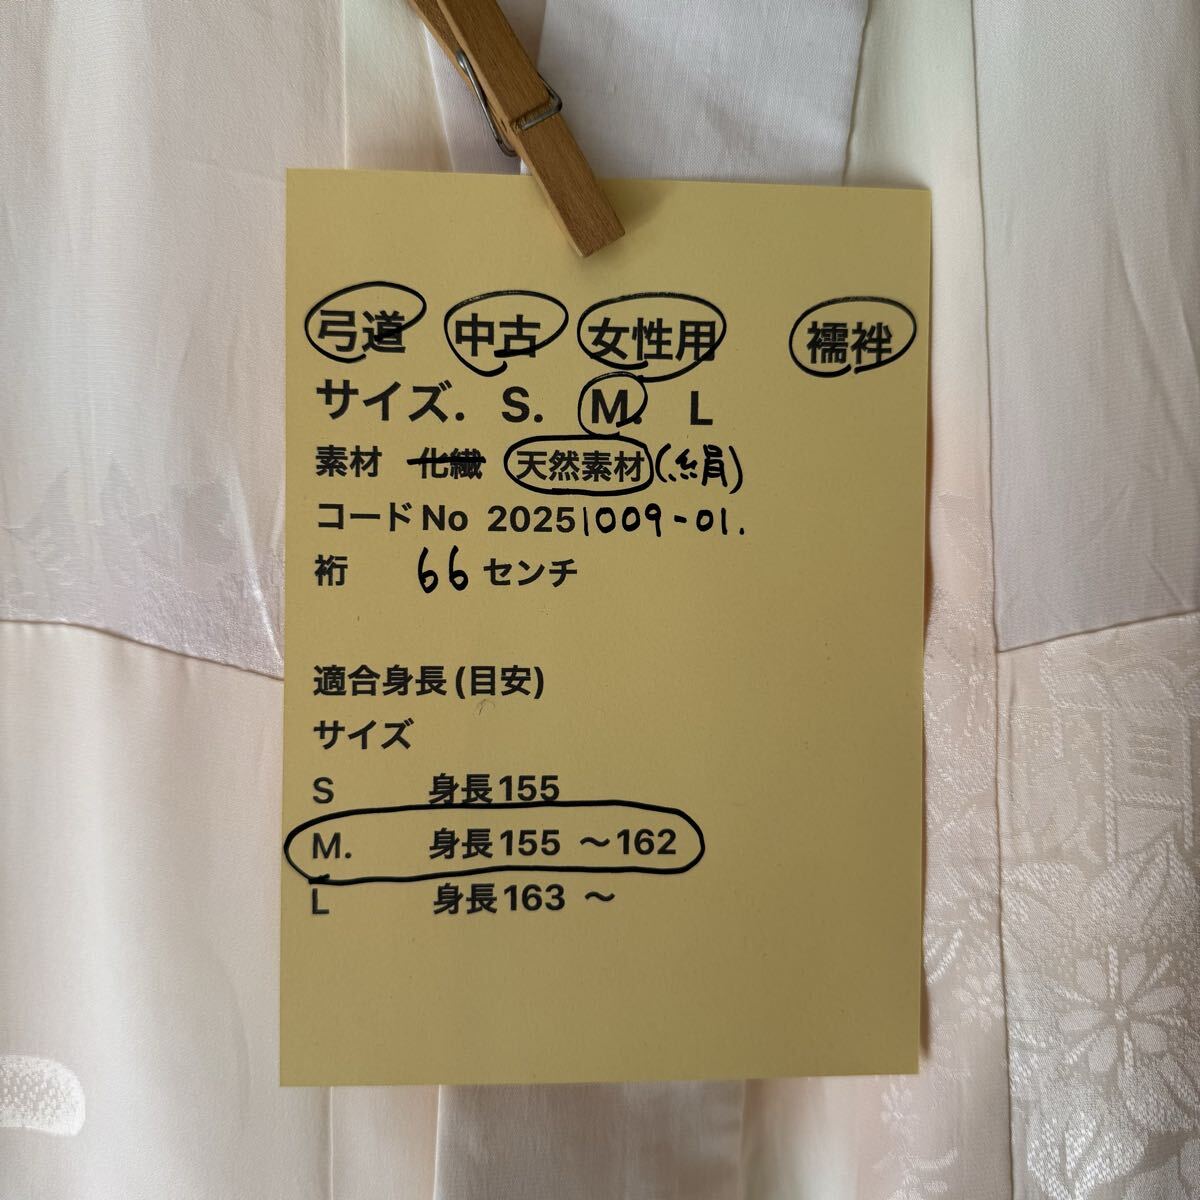 弓道 中古 女性用 襦袢
サイズ. S. M. L
素材 化繊 天然素材(絹)
コードNo 20251009-01.
裄 66 センチ
適合身長(目安)
サイズ
S 身長155
M. 身長155 〜162
L 身長163 〜